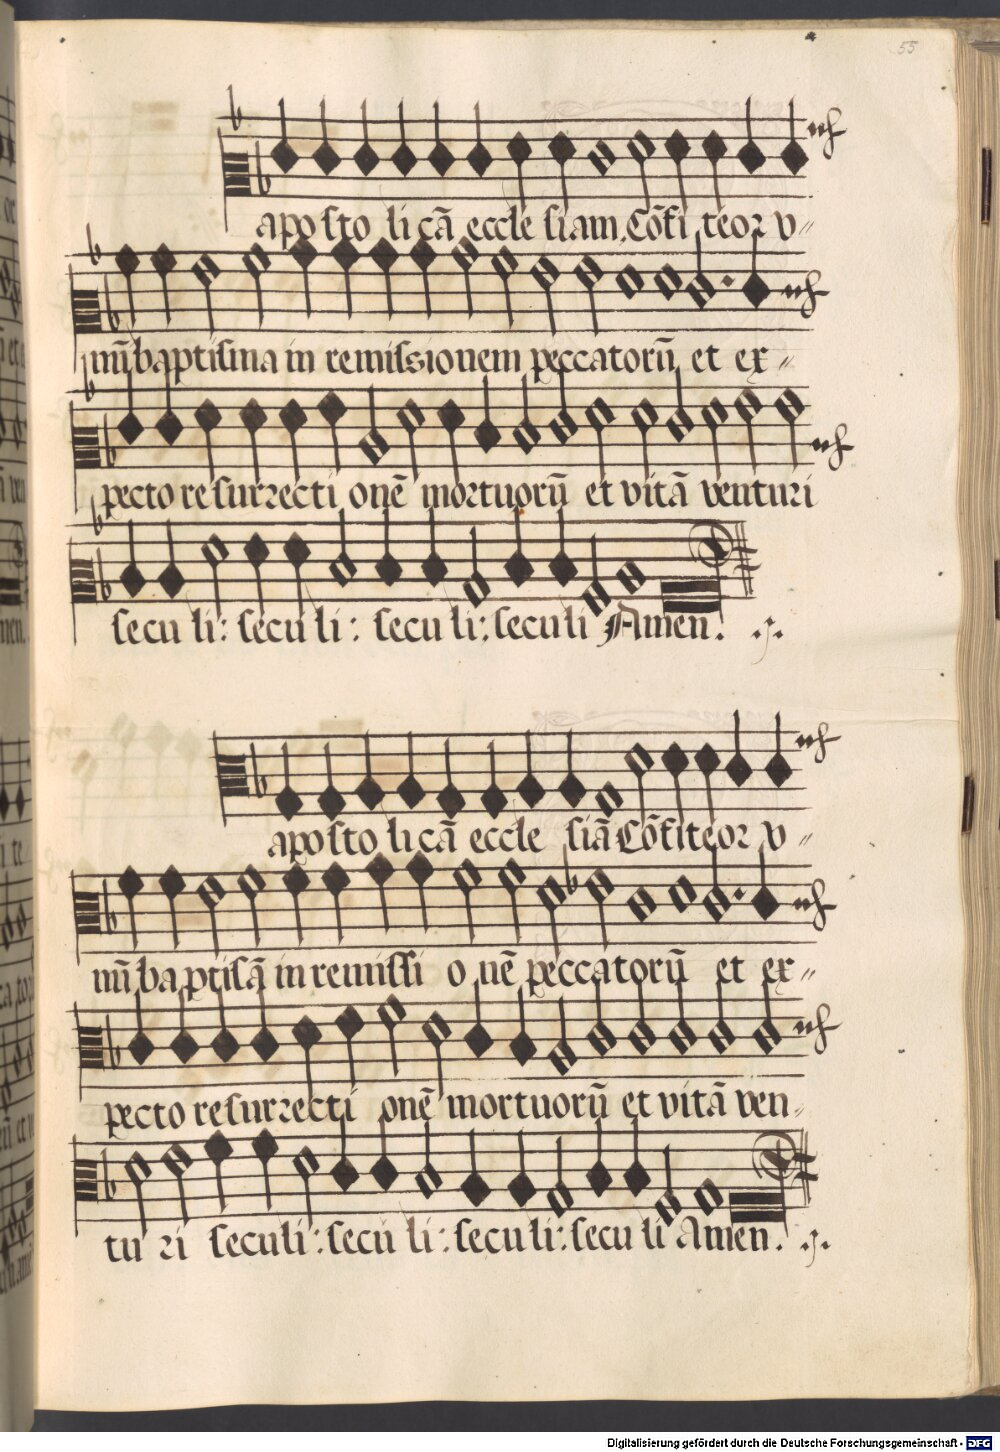 55
aposto licā eccle siam. Cōfi teor v〃
nū baptisma in remissionem peccatorū et ex〃
pecto resurrecti onē mortuorū et vitā venturi
secu li: secu li: secu li: seculi Amen.
aposto licā eccle siā Cōfiteor v〃
nū baptisā in remissi o nē peccatorū et ex〃
pecto resurrecti onē mortuorū et vitā ven〃
tu ri seculi: secu li: seculi: secu li Amen.
Digitalisierung gefördert durch die Deutsche Forschungsgemeinschaft - DFG